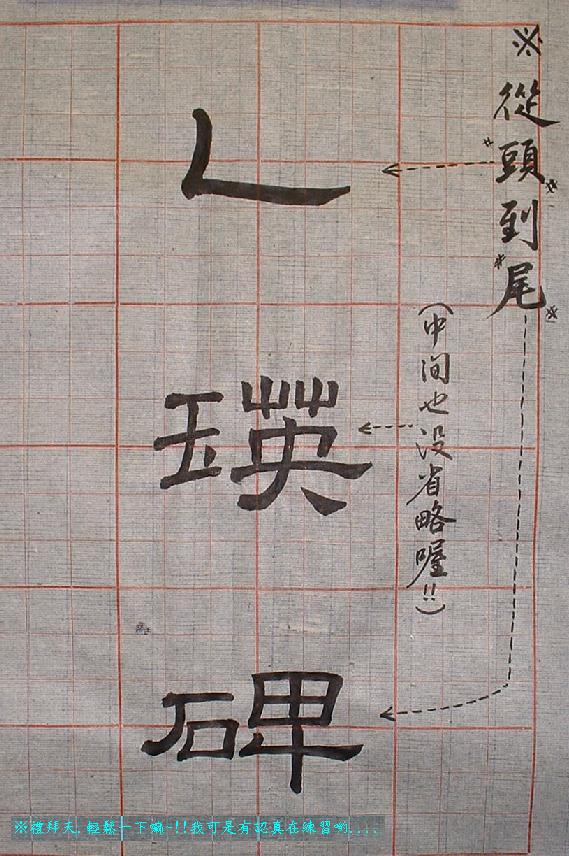 ※從*頭*到*尾*
(中间也没省略喔!!)
乙瑛碑
※禮拜天,輕鬆一下嘛~!!我可是有認真在練習喲....